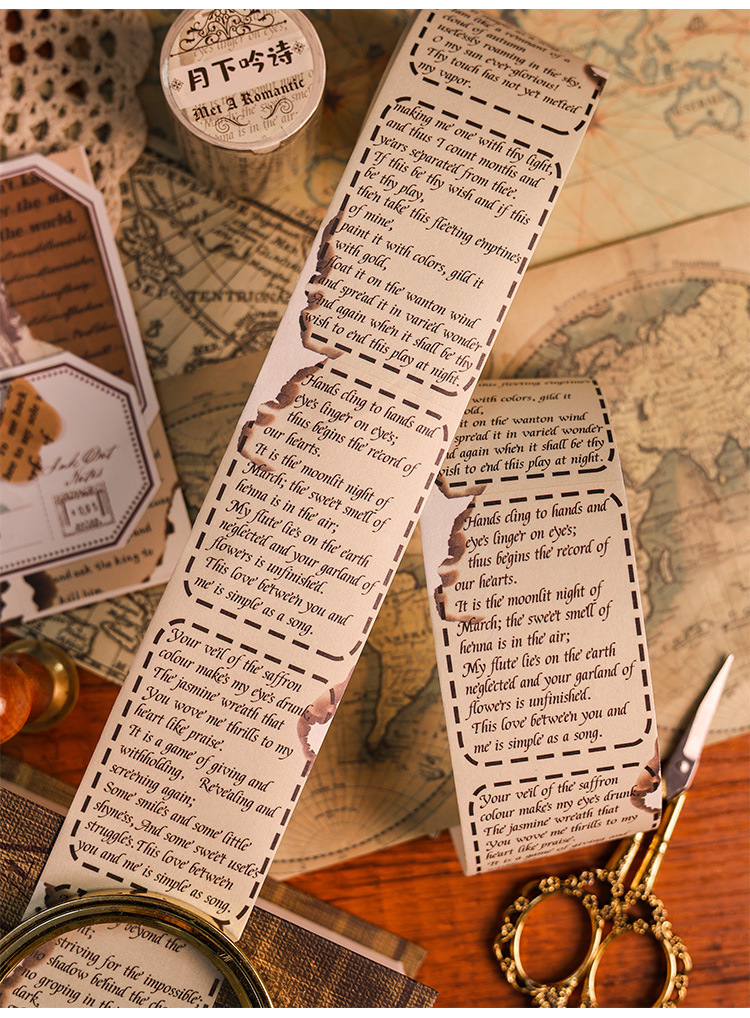 eyes linger on eyes;
月下吟诗
Met A Romantic
is in the air;
cloud of autumn
uselessly roaming in the sky,
O my sun ever-glorious!
Thy touch has not yet melted
my vapor,
making me one with thy light,
and thus I count months and
years separated from thee.
If this be thy wish and if this
be thy play,
then take this fleeting emptines
of mine,
paint it with colors, gild it
with gold,
float it on the wanton wind
and spread it in varied wonder
And again when it shall be thy
wish to end this play at night.
Hands cling to hands and
eyes linger on eyes;
thus begins the record of
our hearts.
It is the moonlit night of
March; the sweet smell of
henna is in the air;
My flute lies on the earth
neglected and your garland of
flowers is unfinished.
This love between you and
me is simple as a song.
Your veil of the saffron
colour makes my eyes drunk
The jasmine wreath that
You wove me thrills to my
heart like praise.
It is a game of giving and
withholding, Revealing and
screening again;
Some smiles and some little
shyness, And some sweet useles
struggles. This love between
you and me is simple as song.
beyond the
striving for the impossible;
no shadow behind the
no groping in the
dark,
with colors, gild it
old,
it on the wanton wind
spread it in varied wonder
d again when it shall be thy
wish to end this play at night.
Hands cling to hands and
eyes linger on eyes;
thus begins the record of
our hearts.
It is the moonlit night of
March; the sweet smell of
henna is in the air;
My flute lies on the earth
neglected and your garland of
flowers is unfinished.
This love between you and
me is simple as a song.
Your veil of the saffron
colour makes my eyes drunk
The jasmine wreath that
You wove me thrills to my
heart like praise.
It is a game of giving and
the world.
and ask the king to
kill him
TENTRION